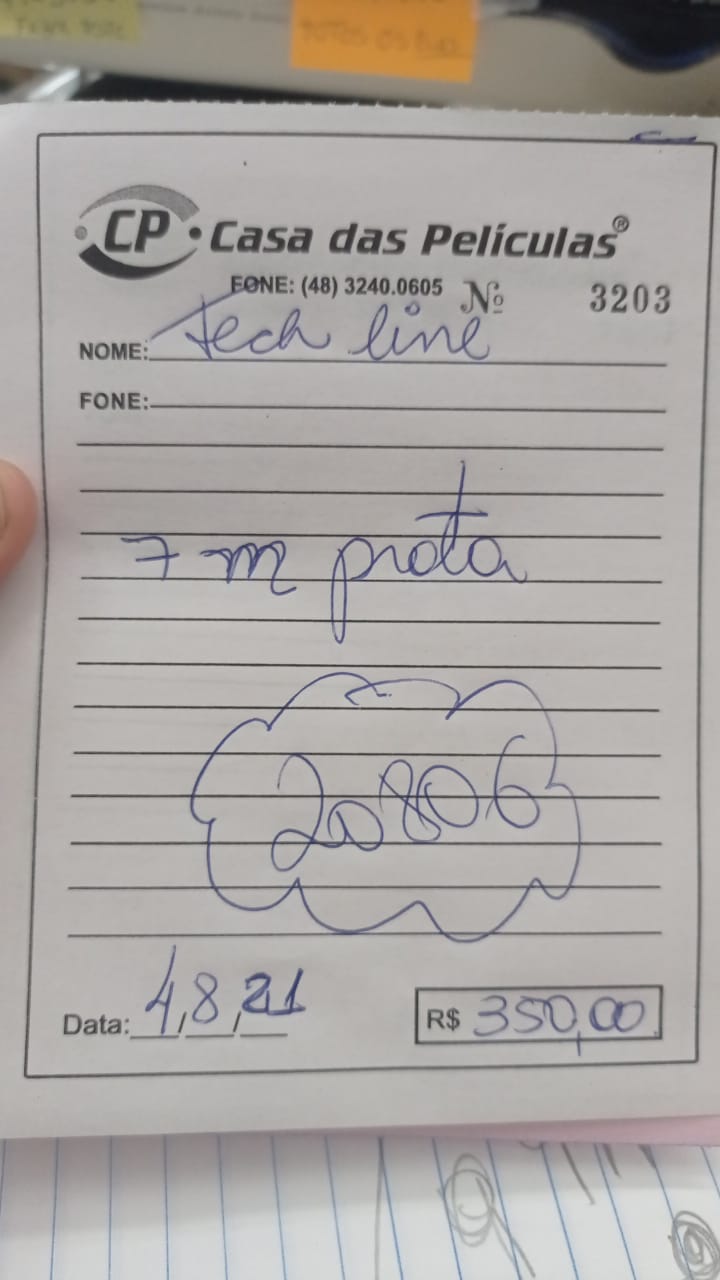 CP • Casa das Películas®
FONE: (48) 3240.0605 Nº 3203
NOME: Tech line
FONE:
7 m prata
20806
Data: 4/8/21 R$ 350,00